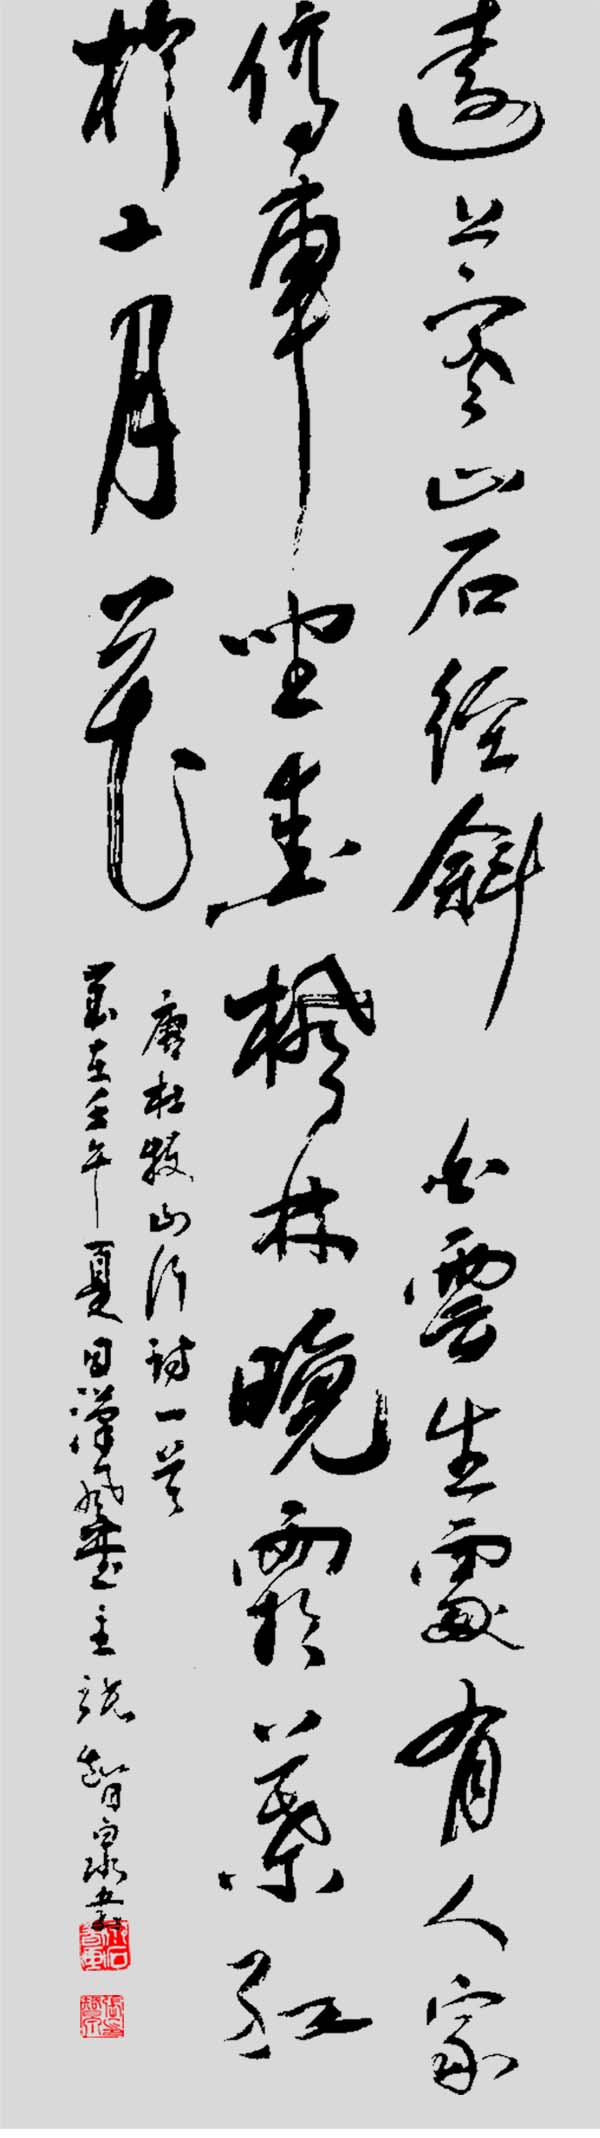 遠上寒山石徑斜 白雲生處有人家
停車坐愛楓林晚霜葉紅
於二月花
唐杜牧山行詩一首
歲在壬午夏日漢風主智泉書